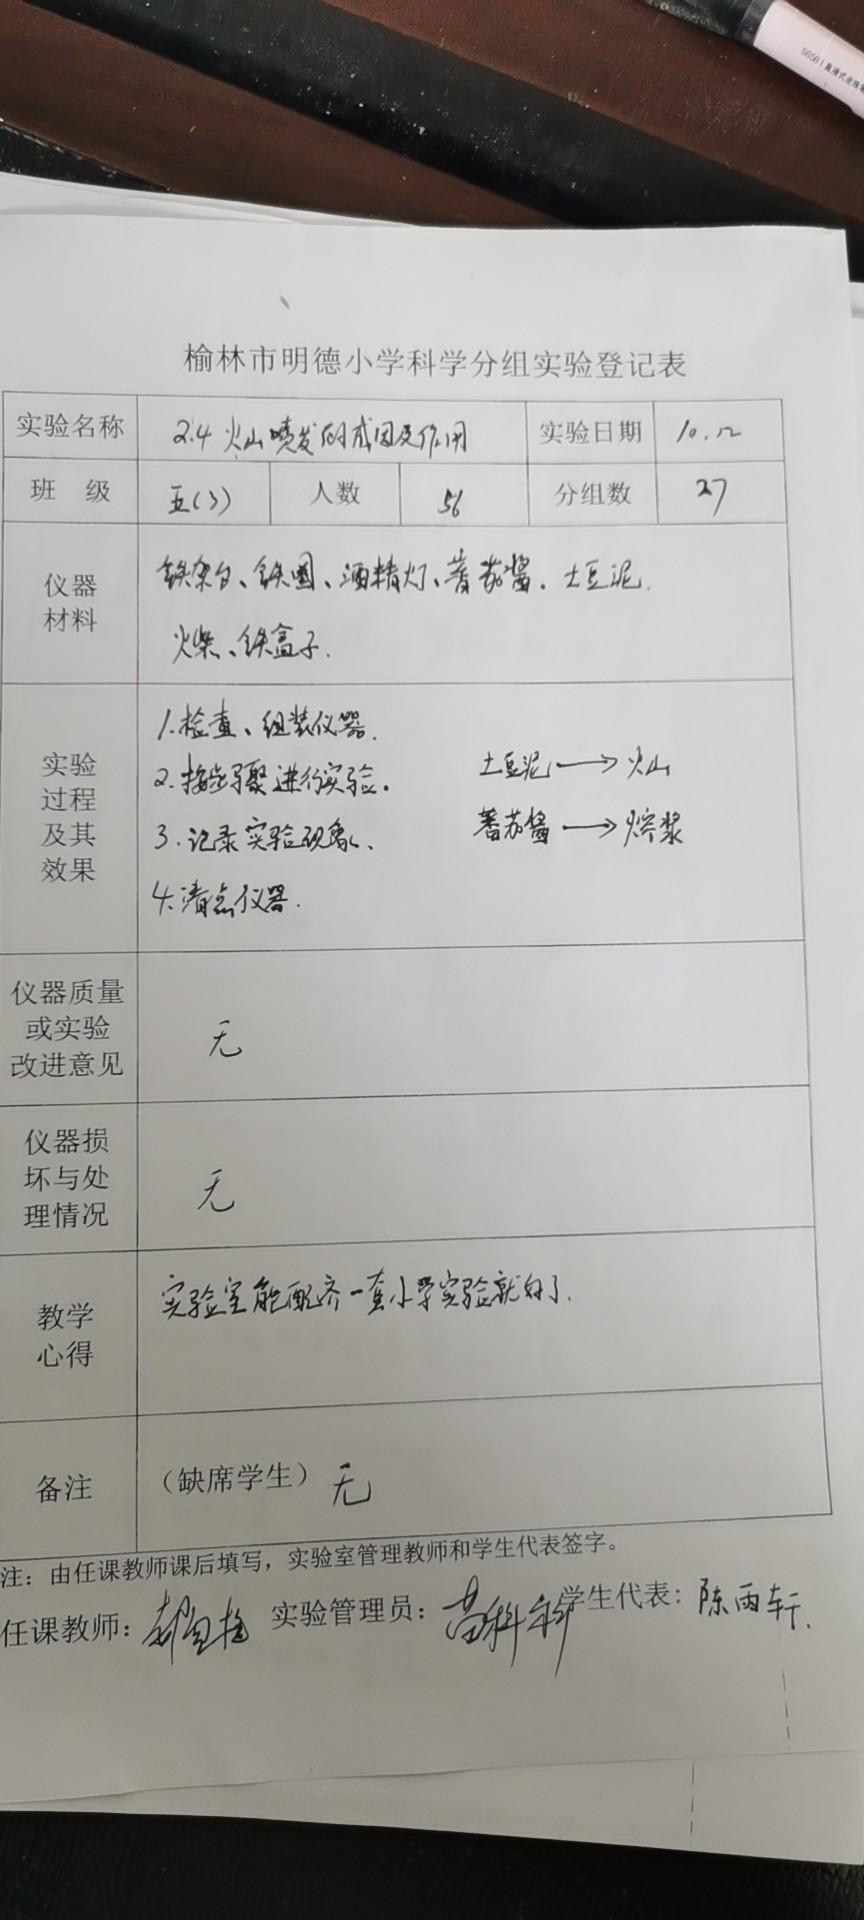 榆林市明德小学科学分组实验登记表
实验名称 2.4 火山喷发的成因及作用 实验日期 10.12
班 级 五(3) 人数 56 分组数 27
仪器材料 铁架台、铁圈、酒精灯、蕃茄酱、土豆泥.
火柴、铁盒子.
实验过程及其效果
1.检查、组装仪器.
2.按步骤进行实验. 土豆泥→火山
3.记录实验现象、 蕃茄酱→熔浆
4.清点仪器.
仪器质量或实验改进意见 无
仪器损坏与处理情况 无
教学心得 实验室能配齐一套小学实验就好了.
备注 (缺席学生) 无
注：由任课教师课后填写，实验室管理教师和学生代表签字。
任课教师： 实验管理员： 学生代表：陈雨轩.